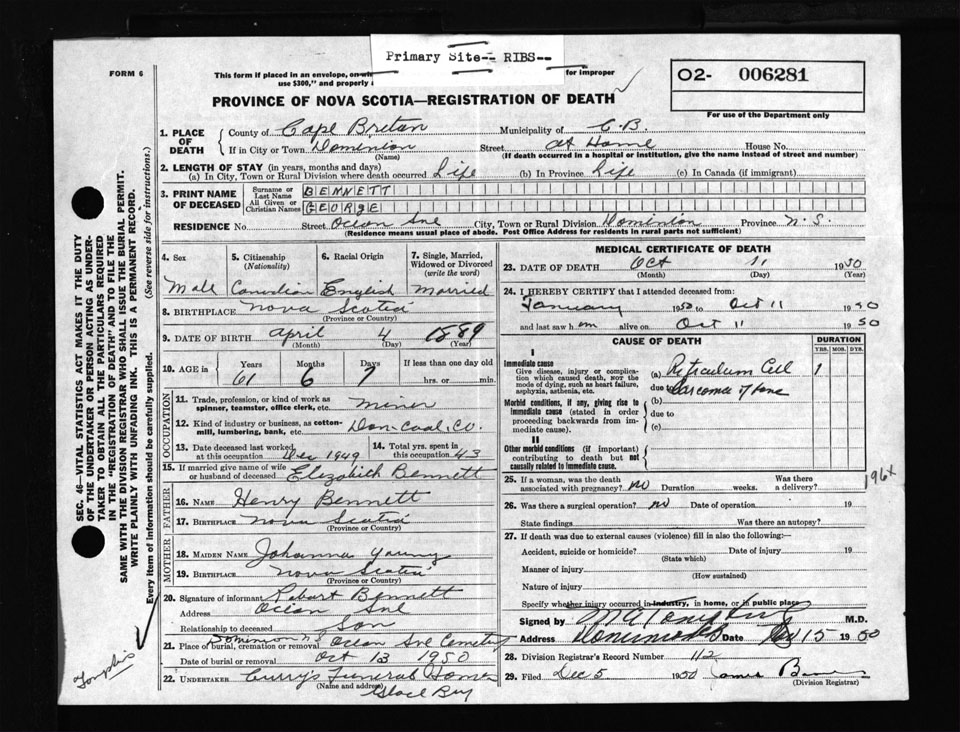 Primary Site-- RIBS--
FORM 6
This form if placed in an envelope, for improper
use $300," and properly
02- 006281
For use of the Department only
PROVINCE OF NOVA SCOTIA—REGISTRATION OF DEATH
1. PLACE OF DEATH County of Cape Breton Municipality of C.B.
If in City or Town Dominion Street at Home House No.
(Name) (If death occurred in a hospital or institution, give the name instead of street and number)
2. LENGTH OF STAY (in years, months and days)
(a) In City, Town or Rural Division where death occurred Life (b) In Province Life (c) In Canada (if immigrant)
3. PRINT NAME OF DECEASED Surname or Last Name BENNETT
All Given or Christian Names GEORGE
RESIDENCE No. Street Ocean Ave City, Town or Rural Division Dominion Province N.S.
(Residence means usual place of abode. Post Office Address for residents in rural parts not sufficient)
4. Sex 5. Citizenship (Nationality) 6. Racial Origin 7. Single, Married, Widowed or Divorced (write the word)
Male Canadian English Married
8. BIRTHPLACE Nova Scotia
(Province or Country)
9. DATE OF BIRTH April 4 1889
(Month) (Day) (Year)
10. AGE in Years Months Days If less than one day old
61 6 7 hrs. or min.
OCCUPATION
11. Trade, profession or kind of work as spinner, teamster, office clerk, etc. Miner
12. Kind of industry or business, as cotton-mill, lumbering, bank, etc. Dom Coal Co.
13. Date deceased last worked at this occupation Dec 1949 14. Total yrs. spent in this occupation 43
15. If married give name of wife or husband of deceased Elizabeth Bennett
FATHER
16. NAME Henry Bennett
17. BIRTHPLACE Nova Scotia
(Province or Country)
MOTHER
18. MAIDEN NAME Johanna Young
19. BIRTHPLACE Nova Scotia
(Province or Country)
20. Signature of informant Robert Bennett
Address Ocean Ave
Relationship to deceased Son
21. Place of burial, cremation or removal Dominion N S Ocean Ave Cemetery
Date of burial or removal Oct 13 1950
22. UNDERTAKER Curry's Funeral Home
(Name and address) Glace Bay
MEDICAL CERTIFICATE OF DEATH
23. DATE OF DEATH Oct 11 1950
(Month) (Day) (Year)
24. I HEREBY CERTIFY that I attended deceased from:
January 1950 to Oct 11 1950
and last saw him alive on Oct 11 1950
CAUSE OF DEATH DURATION
YRS. MOS. DYS.
I
Immediate cause
Give disease, injury or complication which caused death, NOT the mode of dying, such as heart failure, asphyxia, asthenia, etc.
(a) Reticulum Cell 1
due to Sarcoma of bone
Morbid conditions, if any, giving rise to immediate cause (stated in order proceeding backwards from immediate cause).
(b)
due to
(c)
II
Other morbid conditions (if important) contributing to death but not causally related to immediate cause.
196x
25. If a woman, was the death associated with pregnancy? no Duration weeks. Was there a delivery?
26. Was there a surgical operation? no Date of operation 19
State findings Was there an autopsy?
27. If death was due to external causes (violence) fill in also the following:—
Accident, suicide or homicide? Date of injury 19
(State which)
Manner of injury
(How sustained)
Nature of injury
Specify whether injury occurred in industry, in home, or in public place
Signed by M.D.
Address Dominion Date Nov 15 1950
28. Division Registrar's Record Number 112
29. Filed Dec 5 1950 James
(Division Registrar)
SEC. 46—VITAL STATISTICS ACT MAKES IT THE DUTY
OF THE UNDERTAKER OR PERSON ACTING AS UNDER-
TAKER TO OBTAIN ALL THE PARTICULARS REQUIRED
IN THE "REGISTRATION OF DEATH" AND TO FILE THE
SAME WITH THE DIVISION REGISTRAR WHO SHALL ISSUE THE BURIAL PERMIT.
WRITE PLAINLY WITH UNFADING INK. THIS IS A PERMANENT RECORD.
Every item of information should be carefully supplied. (See reverse side for instructions.)